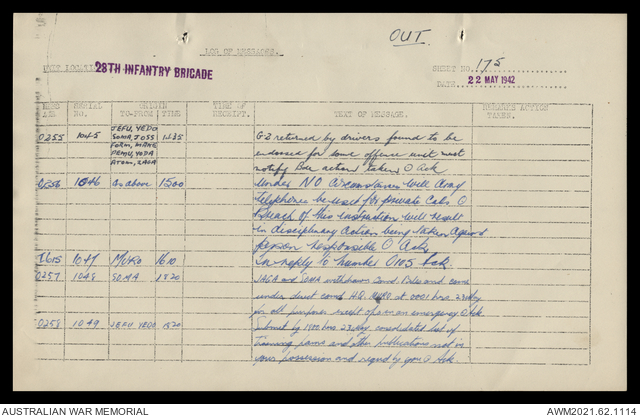 OUT.
LOG OF MESSAGES.
UNIT LOCATION 28TH INFANTRY BRIGADE
SHEET NO. 175
DATE 22 MAY 1942
MESSAGE SERIAL NO. ORIGIN TO-FROM TIME TIME OF RECEIPT. TEXT OF MESSAGE. REMARKS ACTION TAKEN.
0255 1045 JEFU, YEDO
SOMA, JOSS
FORM, MAKE
PEMU, YODA
1435
G2 returned by drivers found to be
endorsed for some offence unit must
notify Bde action taken O Ack
0256 1046 as above 1500
Under NO circumstances will Army
Telephones be used for private Calls O
Breach of this instruction will result
in disciplinary action being taken against
person responsible O Ack
1047 MURO 1610
In reply to number 0105 Ack
0257 1048 SOMA 1820
JAGA and SOMA withdrawn and come
under direct comd H.Q. MURO at 0001 hrs 23 May
for all purposes except of an emergency O Ack
0258 1049 JEFU YEDO 1820
Submit by 1900 hrs 23 May consolidated list of
Training pams and other publications not in
your possession and reqd by you O Ack.
AUSTRALIAN WAR MEMORIAL
AWM2021.62.1114